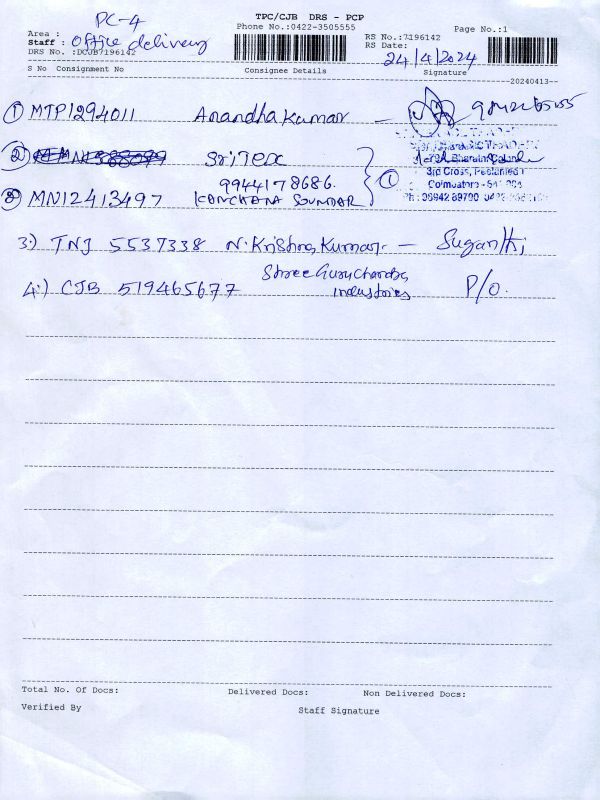 PC-4
TPC/CJB DRS - PCP
Phone No.:0422-3505555
Page No.:1
Area :
RS No.:7196142
Staff : Office delivery
RS Date: 24/4/2024
DRS No. :DCJB7196142
S No Consignment No Consignee Details Signature
20240413--
1 MTP1294011 Anandhakumar -
2 Sritex
9944178686.
3rd Cross,
Coimbatore -
3 MN12413497 KANCHANA SOUNDAR } 1
3.) TNJ 5537338 N. Krishna Kumar. - Suganthi
4.) CJB 519465677 Shree Guru Chandra Industries P/O.
Total No. Of Docs: Delivered Docs: Non Delivered Docs:
Verified By Staff Signature